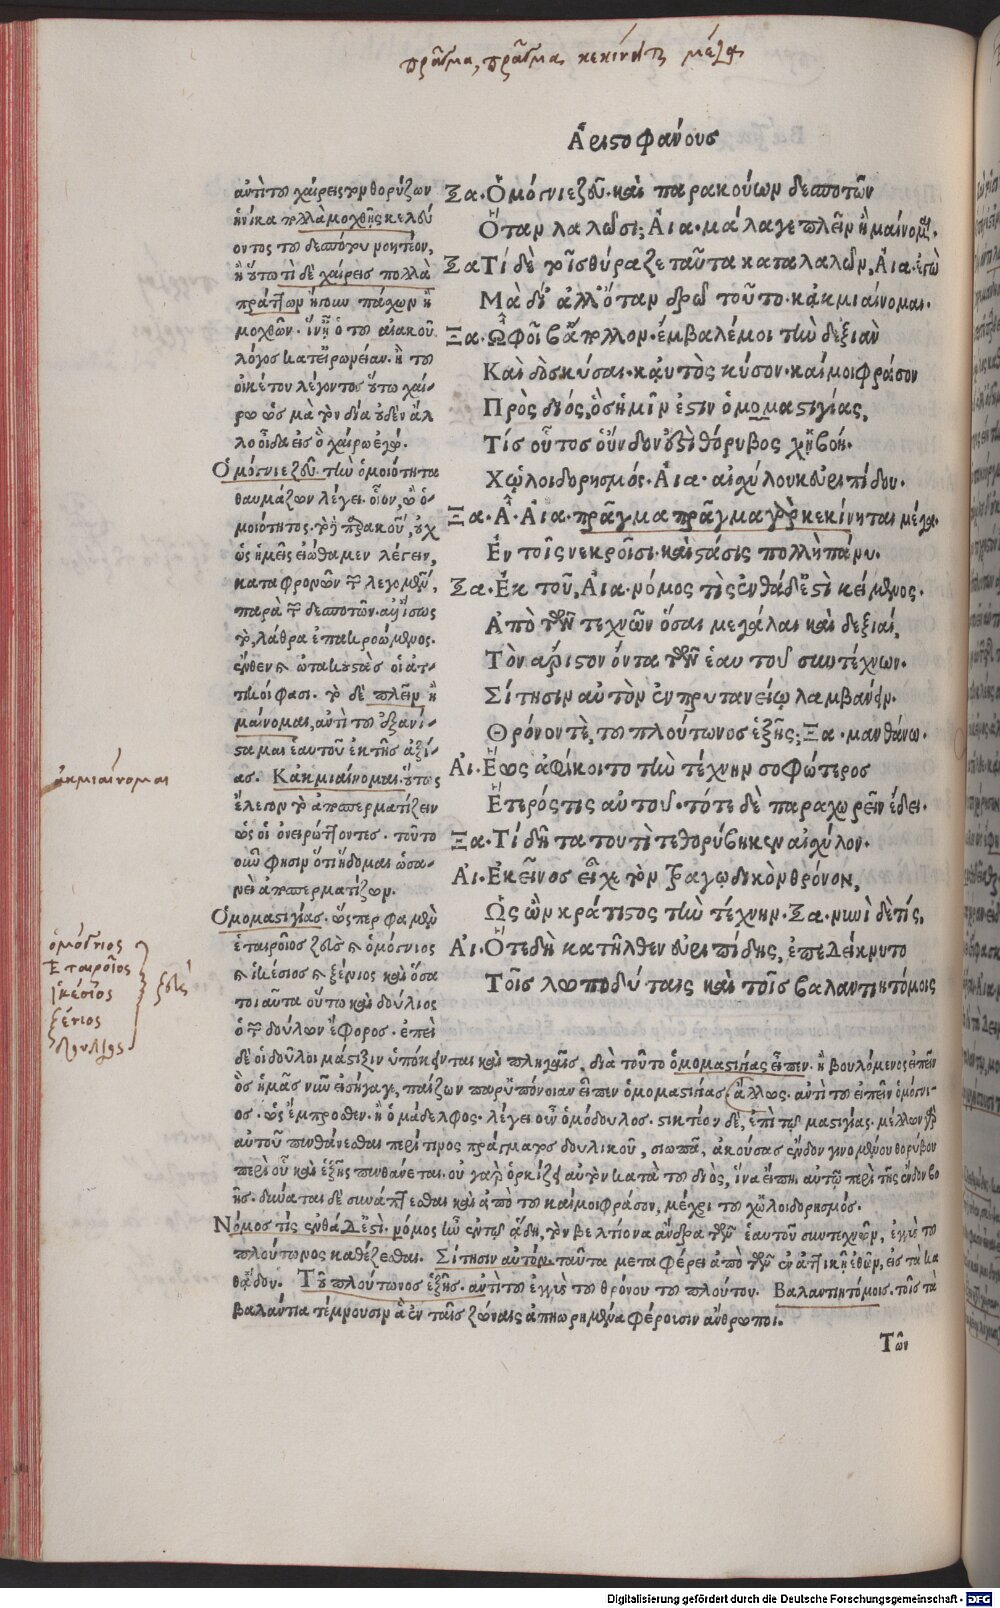 πρᾶγμα, πρᾶγμα κεκίνηται μέγα
Ἀριστοφάνους
Ξα. Ὁμόγνιε ζεῦ. καὶ παρακούων δεσποτῶν
Ὅταν λαλῶσι; Αια. μάλα γε πλεῖν ἢ μαίνομαι.
Ξα Τί δὲ τοῖς θύραζε ταῦτα καταλαλῶν, Αια. ἐγὼ
Μὰ δί' ἀλλ' ὅταν δρῶ τοῦτο. κἀκμιαίνομαι.
Ξα. Ὦ φοῖβ' ἄπολλον. ἔμβαλέ μοι τὴν δεξιὰν
Καὶ δὸς κύσαι. καὐτὸς κύσον. καί μοι φράσον
Πρὸς διός, ὃς ἡμῖν ἐστιν ὁμομαστιγίας,
Τίς οὗτος οὔνδον ἐστὶ θόρυβος χἡ βοή.
Χὠ λοιδορησμός. Αια. αἰσχύλου κεὐριπίδου.
Ξα. Ἆ. Αια. πρᾶγμα πρᾶγμα γὰρ κεκίνηται μέγα.
Ἐν τοῖς νεκροῖσι. καὶ στάσις πολλὴ πάνυ.
Ξα. Ἐκ τοῦ, Αια. νόμος τὶς ἐνθάδ' ἐστὶ κείμενος.
Ἀπὸ τῶν τεχνῶν ὅσαι μεγάλαι καὶ δεξιαί,
Τὸν ἄριστον ὄντα τῶν ἑαυτοῦ συντέχνων.
Σίτησιν αὐτὸν ἐν πρυτανείῳ λαμβάνειν.
Θρόνον τὲ, τοῦ πλούτωνος ἑξῆς; Ξα. μανθάνω.
Αι. Ἕως ἀφίκοιτο τὴν τέχνην σοφώτερος
Ἕτερός τις αὐτοῦ. τότε δὲ παραχωρεῖν ἔδει.
Ξα. Τί δῆτα τουτὶ τεθορύβηκεν αἰσχύλον.
Αι. Ἐκεῖνος εἶχε τὸν τραγῳδικὸν θρόνον,
Ὡς ὢν κράτιστος τὴν τέχνην. Ξα. νυνὶ δὲ τίς,
Αι. Ὅτε δὴ κατῆλθεν εὐριπίδης, ἐπεδείκνυτο
Τοῖς λωποδύταις καὶ τοῖς βαλαντιητόμοις
αὐτὶ τοῦ χαίρεις τονθορύζων
ἡνίκα πολλὰ μοχθῆς κελεύ
οντος τοῦ δεσπότου νοητέον,
ἢ οὕτω τὶ δὲ χαίρεις πολλὰ
πράττων ἤπουν πάσχων ἢ
μοχθῶν. ἵν' ᾖ ὁ τοῦ αἰακοῦ
λόγος κατ' εἰρωνείαν. ἢ τοῦ
οἰκέτου λέγοντος οὕτω χαί-
ρω ὡς μὰ τὸν δία οὐδὲν ἄλ
λο οἶδα εἰς ὃ χαίρω ἐγώ.
Ὁμόγνιε ζεῦ. τὴν ὁμοιότητα
θαυμάζων λέγει. οἷον, ὢ ὁ-
μοιότητος. τὸ δὲ παρακούειν, οὐχ
ὡς ἡμεῖς εἰώθαμεν λέγειν,
καταφρονῶν τῶν λεγομένων,
παρὰ τῶν δεσποτῶν. ἀλλ' ἴσως
τὸ, λάθρα ἐπακροώμενος.
ἔνθεν καὶ ὠτακουστὰς οἱ ἀτ-
τικοί φασι. τὸ δὲ πλεῖν ἢ
μαίνομαι, αὐτὶ τοῦ ἐξανί-
σταμαι ἑαυτοῦ ἐκ τῆς ἀξί-
ας. Κἀκμιαίνομαι. οὕτως
ἔλεγον τὸ ἀποσπερματίζειν
ὡς οἱ ὀνειρώττοντες. τοῦτο
οὖν φησιν ὅτι ἥδομαι ὡσα-
νεὶ ἀποσπερματίζων.
Ὁμομαστιγίας. ὥσπερ φαμὲν
ἑταιρεῖος ζεὺς καὶ ὁμόγνιος
καὶ ἱκέσιος καὶ ξένιος καὶ ὅσα
τοιαῦτα οὕτω καὶ δούλιος
ὁ τῶν δούλων ἔφορος. ἐπεὶ
δὲ οἱ δοῦλοι μάστιξιν ὑπόκεινται καὶ πληγαῖς, διὰ τοῦτο ὁμομαστιγίας εἶπεν. ἢ βουλόμενος εἰπεῖν
ὃς ἡμᾶς νῦν εἰσήγαγε, παίζων παρ' ὑπόνοιαν εἶπεν ὁμομαστιγίας. ἄλλως. αὐτὶ τοῦ εἰπεῖν ὁμόγνι-
ος. ὡς ἔμπροσθεν. ἢ ὁμάδελφος. λέγει οὖν ὁμόδουλος. στικτέον δὲ, ἐπὶ τῷ μαστιγίας. μέλλων γὰρ
αὐτοῦ πυνθάνεσθαι περί τινος πράγματος δουλικοῦ, σιωπᾶ, ἀκούσας ἔνδον γινομένου θορύβου
περὶ οὗ καὶ ἑξῆς πυνθάνεται. οὐ γὰρ ὁρκίζει αὐτὸν κατὰ τοῦ διὸς, ἵνα εἴπῃ αὐτῷ περὶ τῆς ἔνδον βο
ῆς. δύναται δὲ συνάπτεσθαι καὶ ἀπὸ τοῦ καί μοι φράσον, μέχρι τοῦ χὠ λοιδορησμός.
Νόμος τὶς ἐνθάδ' ἐστὶ. νόμος ἦν ἐν τῷ ᾅδῃ, τὸν βελτίονα ἄνδρα τῶν ἑαυτοῦ συντεχνῶν, ἐγγὺς τοῦ
πλούτωνος καθέζεσθαι. Σίτησιν αὐτόν. ταῦτα μεταφέρει ἀπὸ τῶν ἐν ἀττικῇ ἐθῶν, εἰς τὰ κα
θᾅδου. Τοῦ πλούτωνος ἑξῆς. αὐτὶ τοῦ ἐγγὺς τοῦ θρόνου τοῦ πλούτου. Βαλαντιητόμοις. τοῖς τὰ
βαλάντια τέμνουσιν ἃ ἐν ταῖς ζώναις ἀπῃωρημένα φέρουσιν ἄνθρωποι.
Τῶν
ἀκμιαίνομαι
ὁμόγνιος
Ἑταιρεῖος
ἱκέσιος
ξένιος
δούλιος
ζεύς
Digitalisierung gefördert durch die Deutsche Forschungsgemeinschaft - DFG